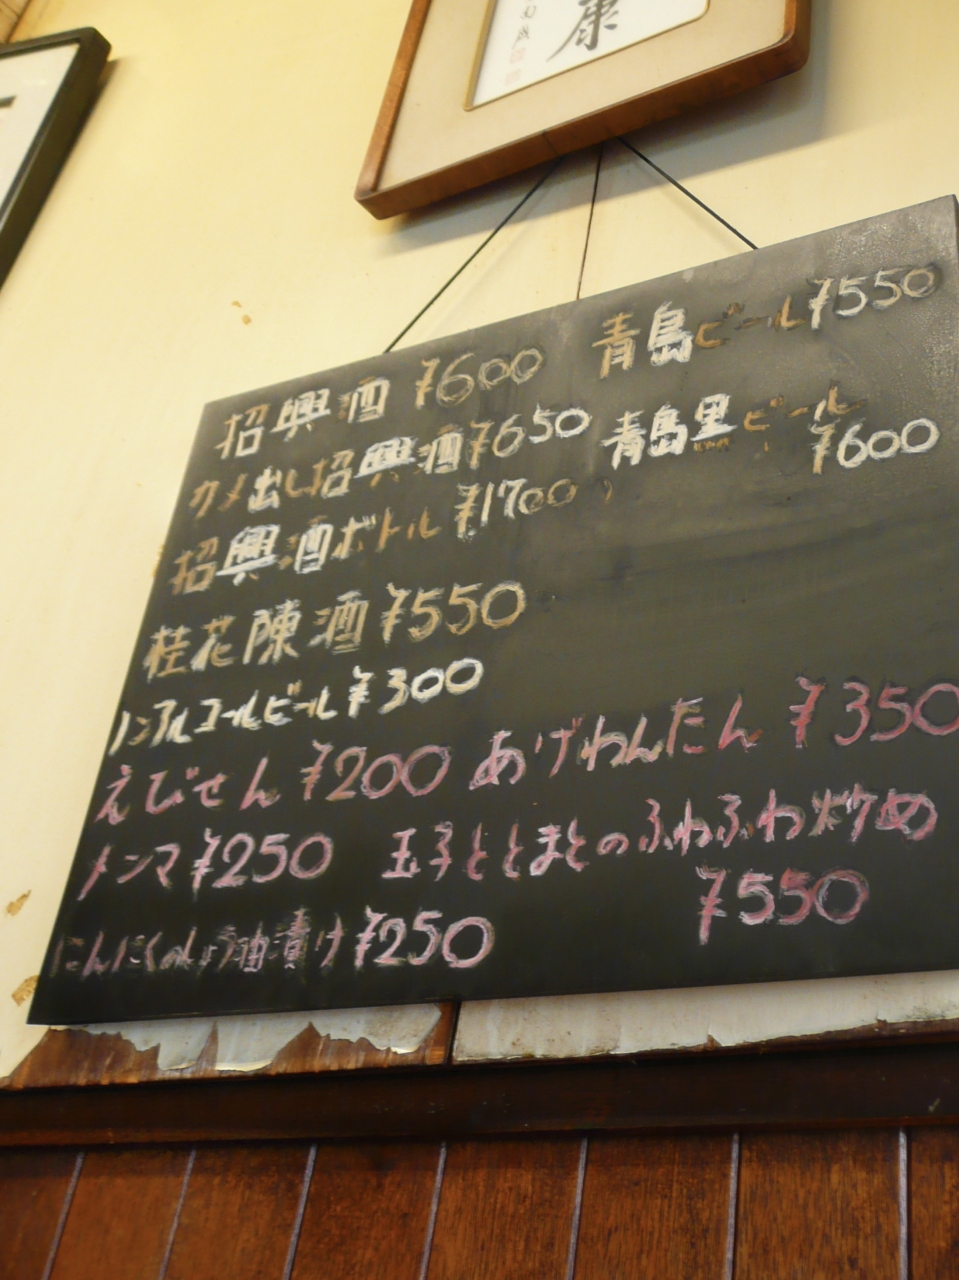 康
招興酒 ¥600
青島ビール ¥550
カメ出し招興酒 ¥650
青島黒ビール
¥600
招興酒ボトル ¥1700
桂花陳酒 ¥550
ノンアルコールビール ¥300
えびせん ¥200
あげわんたん ¥350
メンマ ¥250
玉子ととまとのふわふわ炒め
¥550
にんにくのしょう油漬け ¥250